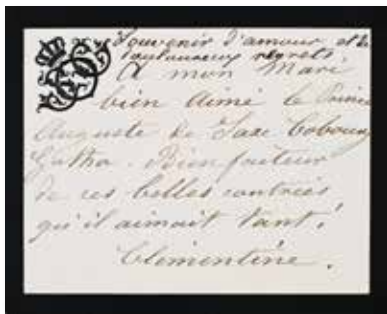 Souvenir d'amour et de
douloureux regrets
A mon Mari
bien Aimé le Prince
Auguste de Saxe Cobourg
Gotha. Bienfaiteur
de ces belles contrées
qu'il aimait tant!
Clémentine.